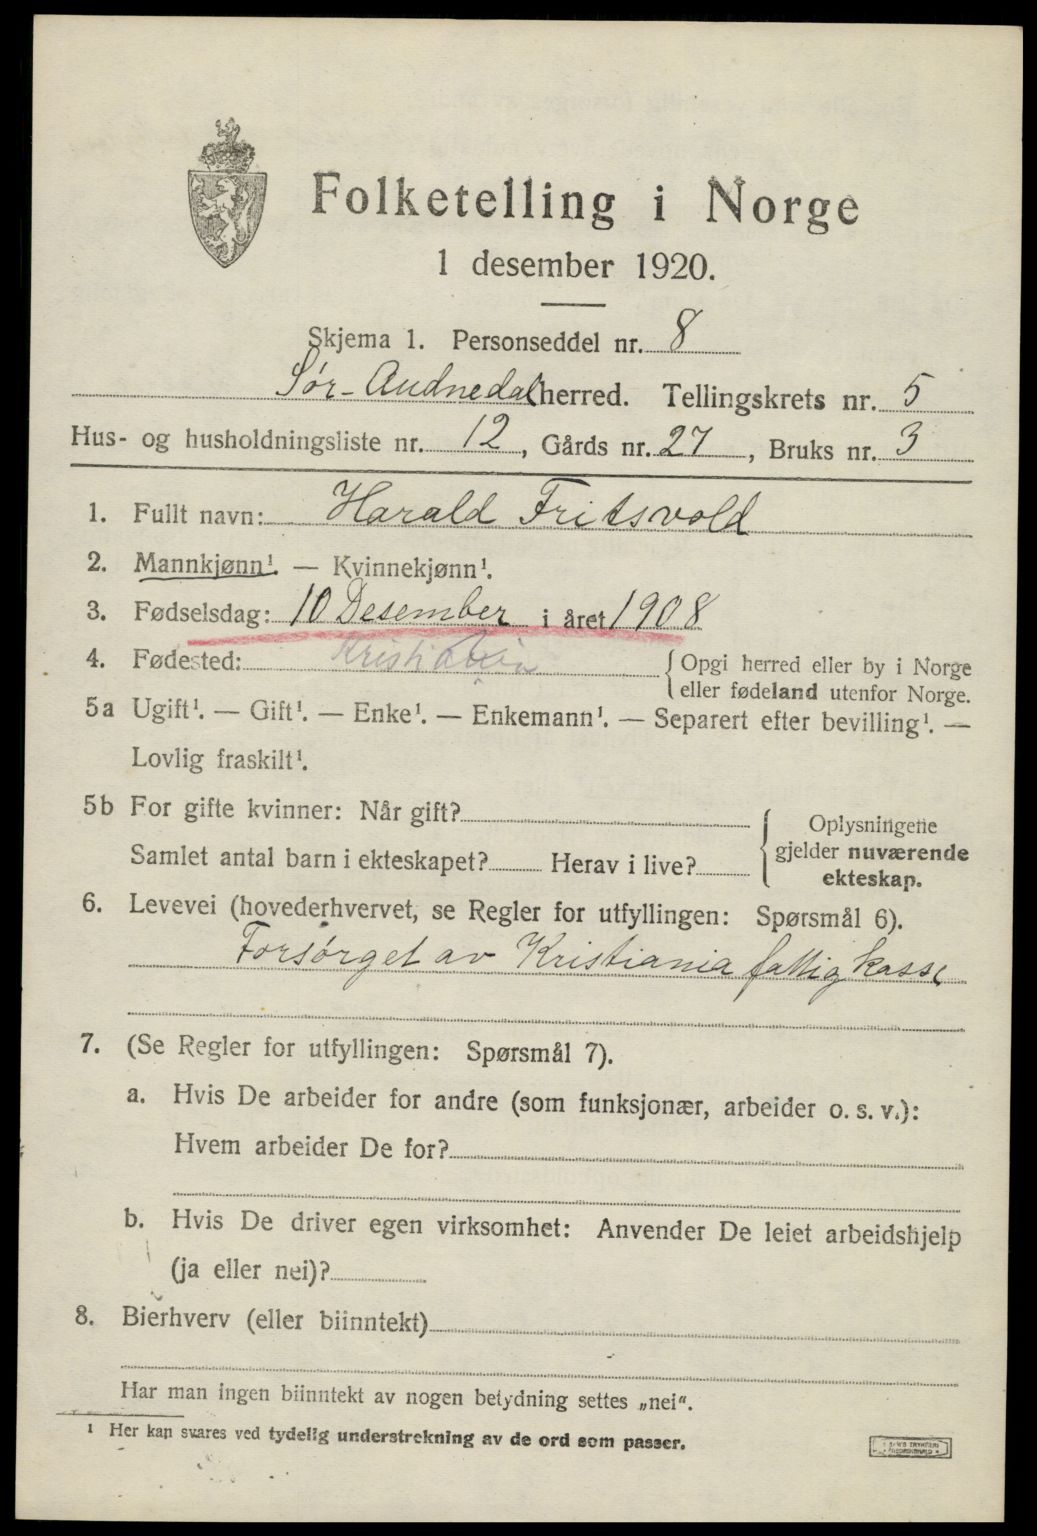 Folketelling i Norge
1 desember 1920.
Skjema 1. Personseddel nr. 8
Sør-Audnedal herred. Tellingskrets nr. 5
Hus- og husholdningsliste nr. 12, Gårds nr. 27, Bruks nr. 3
1. Fullt navn: Harald Fritsvold
2. Mannkjønn¹. — Kvinnekjønn¹.
3. Fødselsdag: 10 Desember i året 1908
4. Fødested: Kristiania { Opgi herred eller by i Norge
eller fødeland utenfor Norge.
5a Ugift¹. — Gift¹. — Enke¹. — Enkemann¹. — Separert efter bevilling¹. —
Lovlig fraskilt¹.
5b For gifte kvinner: Når gift?
Samlet antal barn i ekteskapet? Herav i live?
{ Oplysningene
gjelder nuværende
ekteskap.
6. Levevei (hovederhvervet, se Regler for utfyllingen: Spørsmål 6).
Forsørget av Kristiania fattigkasse
7. (Se Regler for utfyllingen: Spørsmål 7).
a. Hvis De arbeider for andre (som funksjonær, arbeider o. s. v.):
Hvem arbeider De for?
b. Hvis De driver egen virksomhet: Anvender De leiet arbeidshjelp
(ja eller nei)?
8. Bierhverv (eller biinntekt)
Har man ingen biinntekt av nogen betydning settes „nei“.
¹ Her kan svares ved tydelig understrekning av de ord som passer.